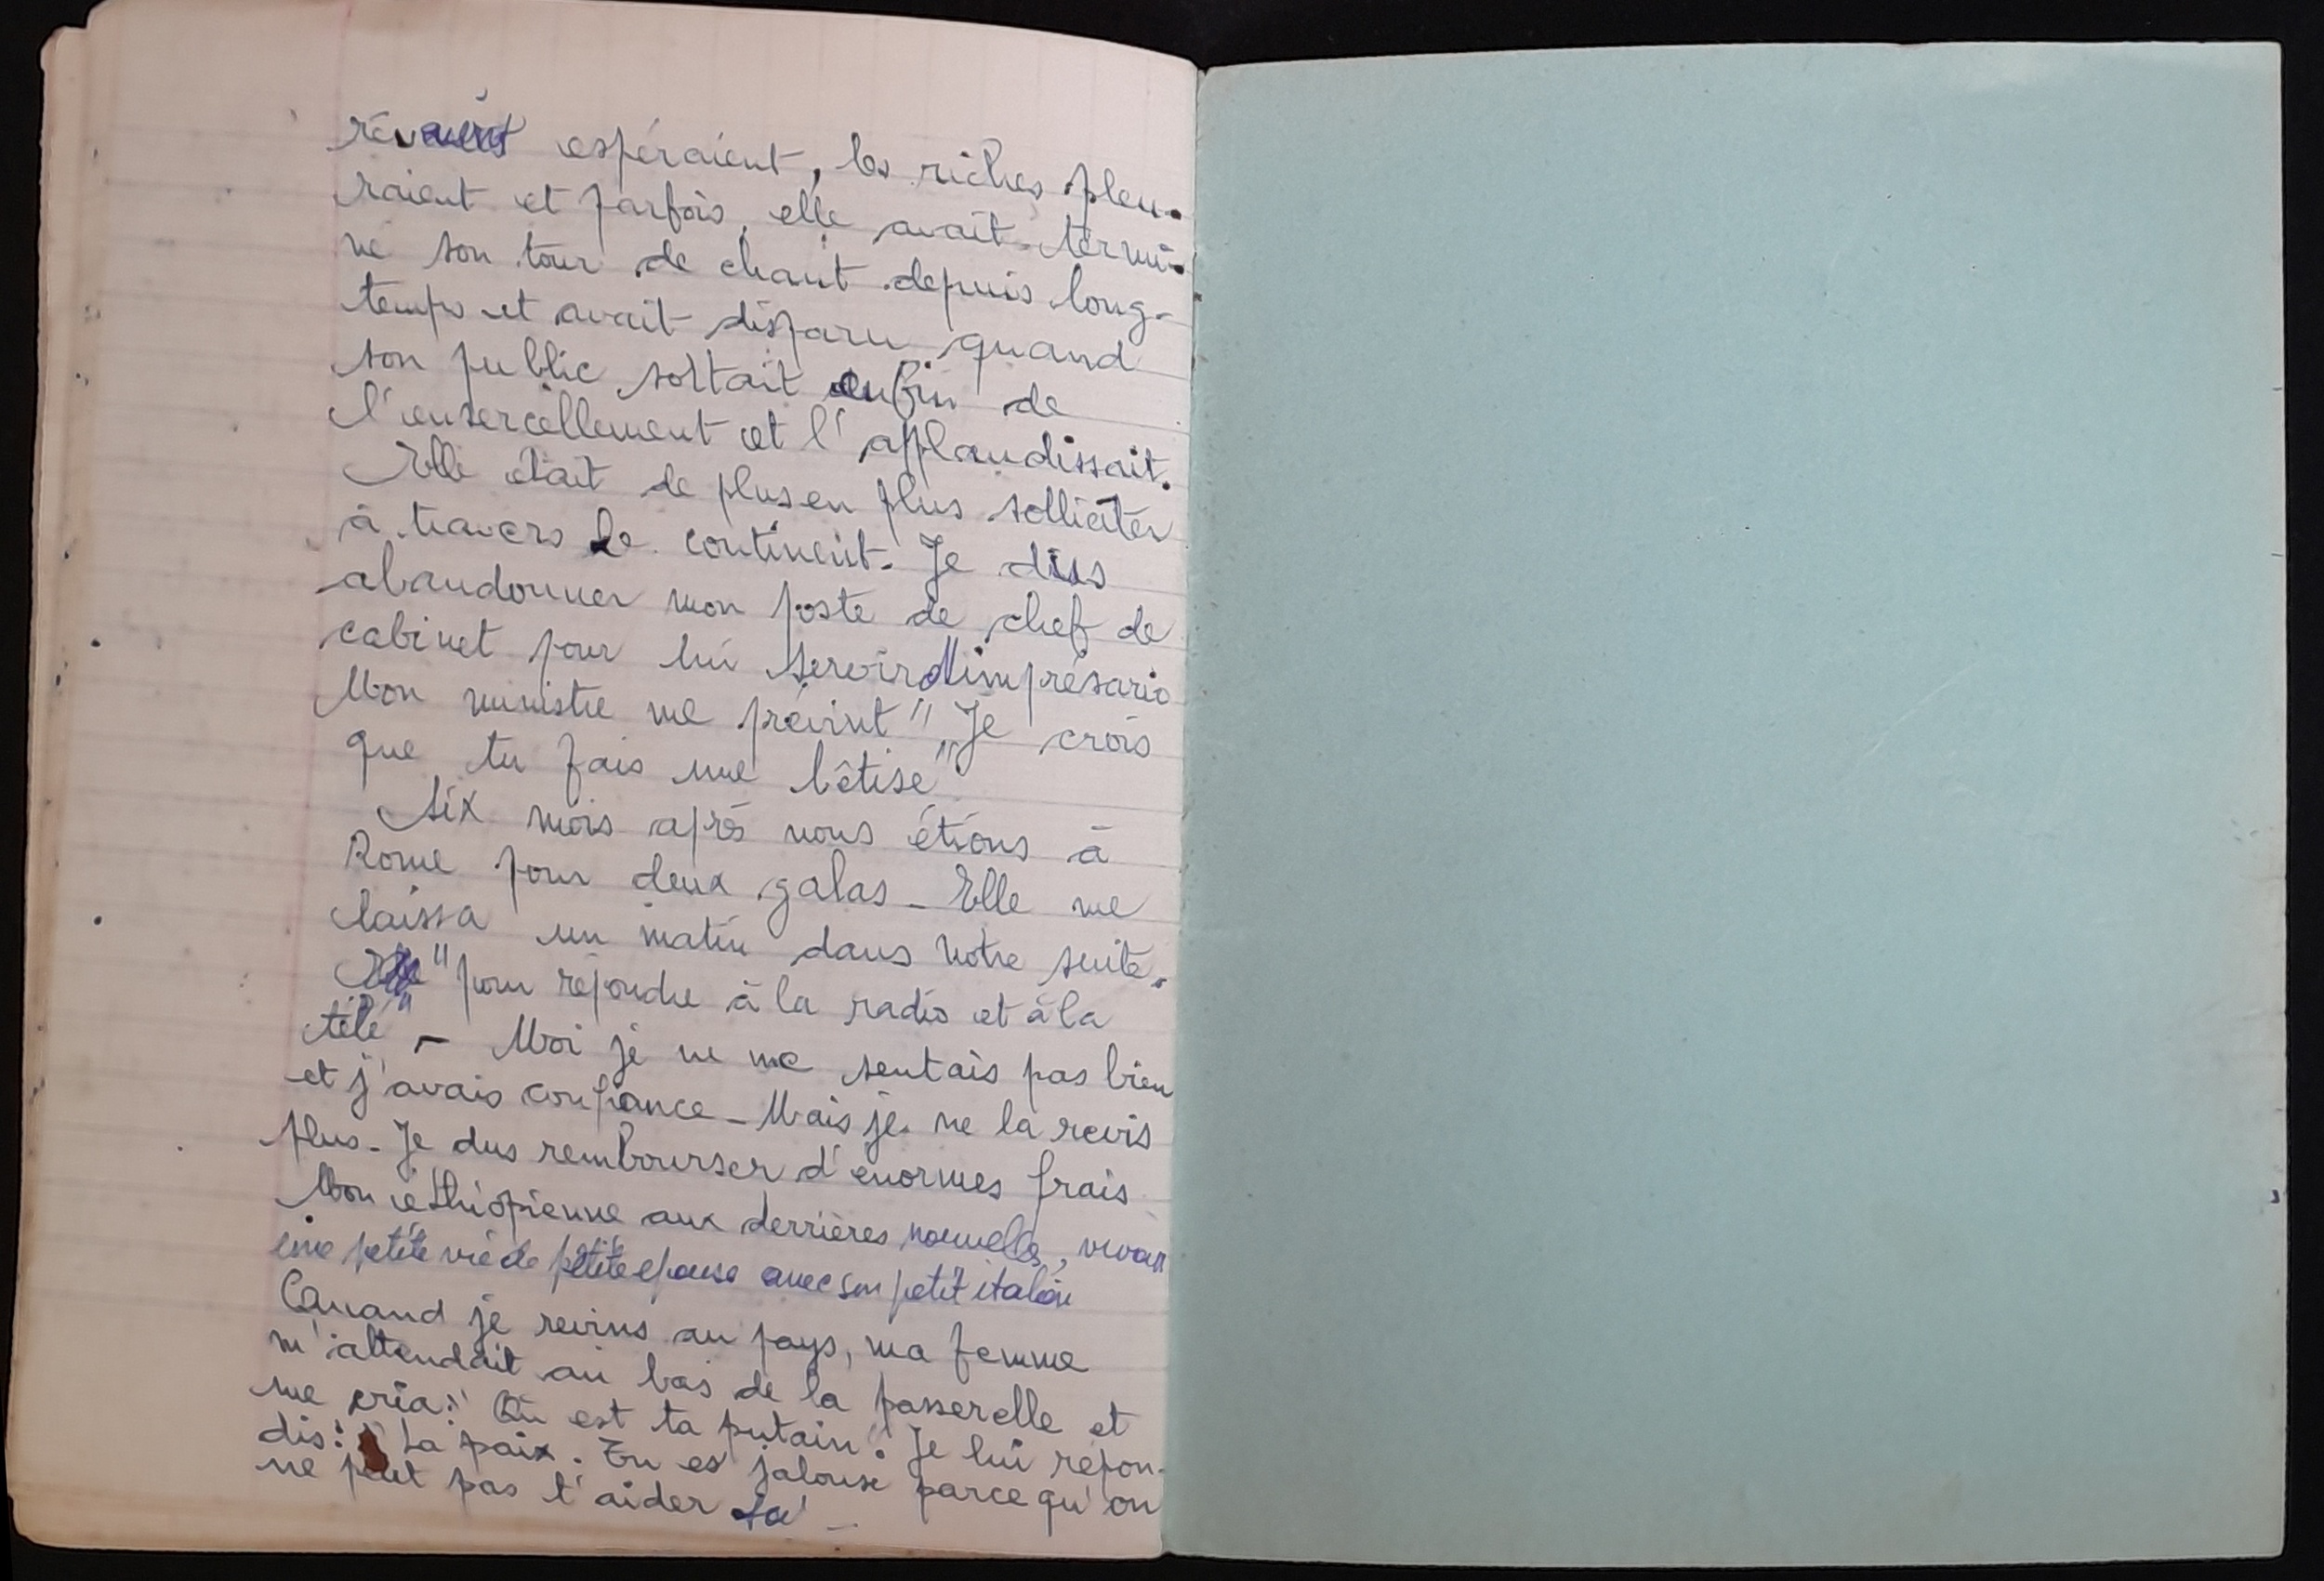 rêvaient espéraient, les riches pleu-
raient et parfois, elle avait termi-
né son tour de chant depuis long-
temps et avait disparu quand
son public sortait enfin de
l'ensorcellement et l'applaudissait.
Elle était de plus en plus solliciter
à travers le continent. Je dus
abandonner mon poste de chef de
cabinet pour lui servir d'imprésario
Mon ministre me prévint " Je crois
que tu fais une bêtise"
Six mois après nous étions à
Rome pour deux galas - Elle me
laissa un matin dans notre suite.
"pour répondre à la radio et à la
télé" - Moi je ne me sentais pas bien
et j'avais confiance - Mais je ne la revis
plus - Je dus rembourser d'enormes frais
Mon éthiopienne aux derrières nouvelles, vivait
une petite vie de petite épouse avec son petit italien
Quand je revins au pays, ma femme
m'attendait au bas de la passerelle et
me cria: " Où est ta putain". Je lui répon-
dis: " La paix. Tu es jalouse parce qu'on
ne peut pas t'aider